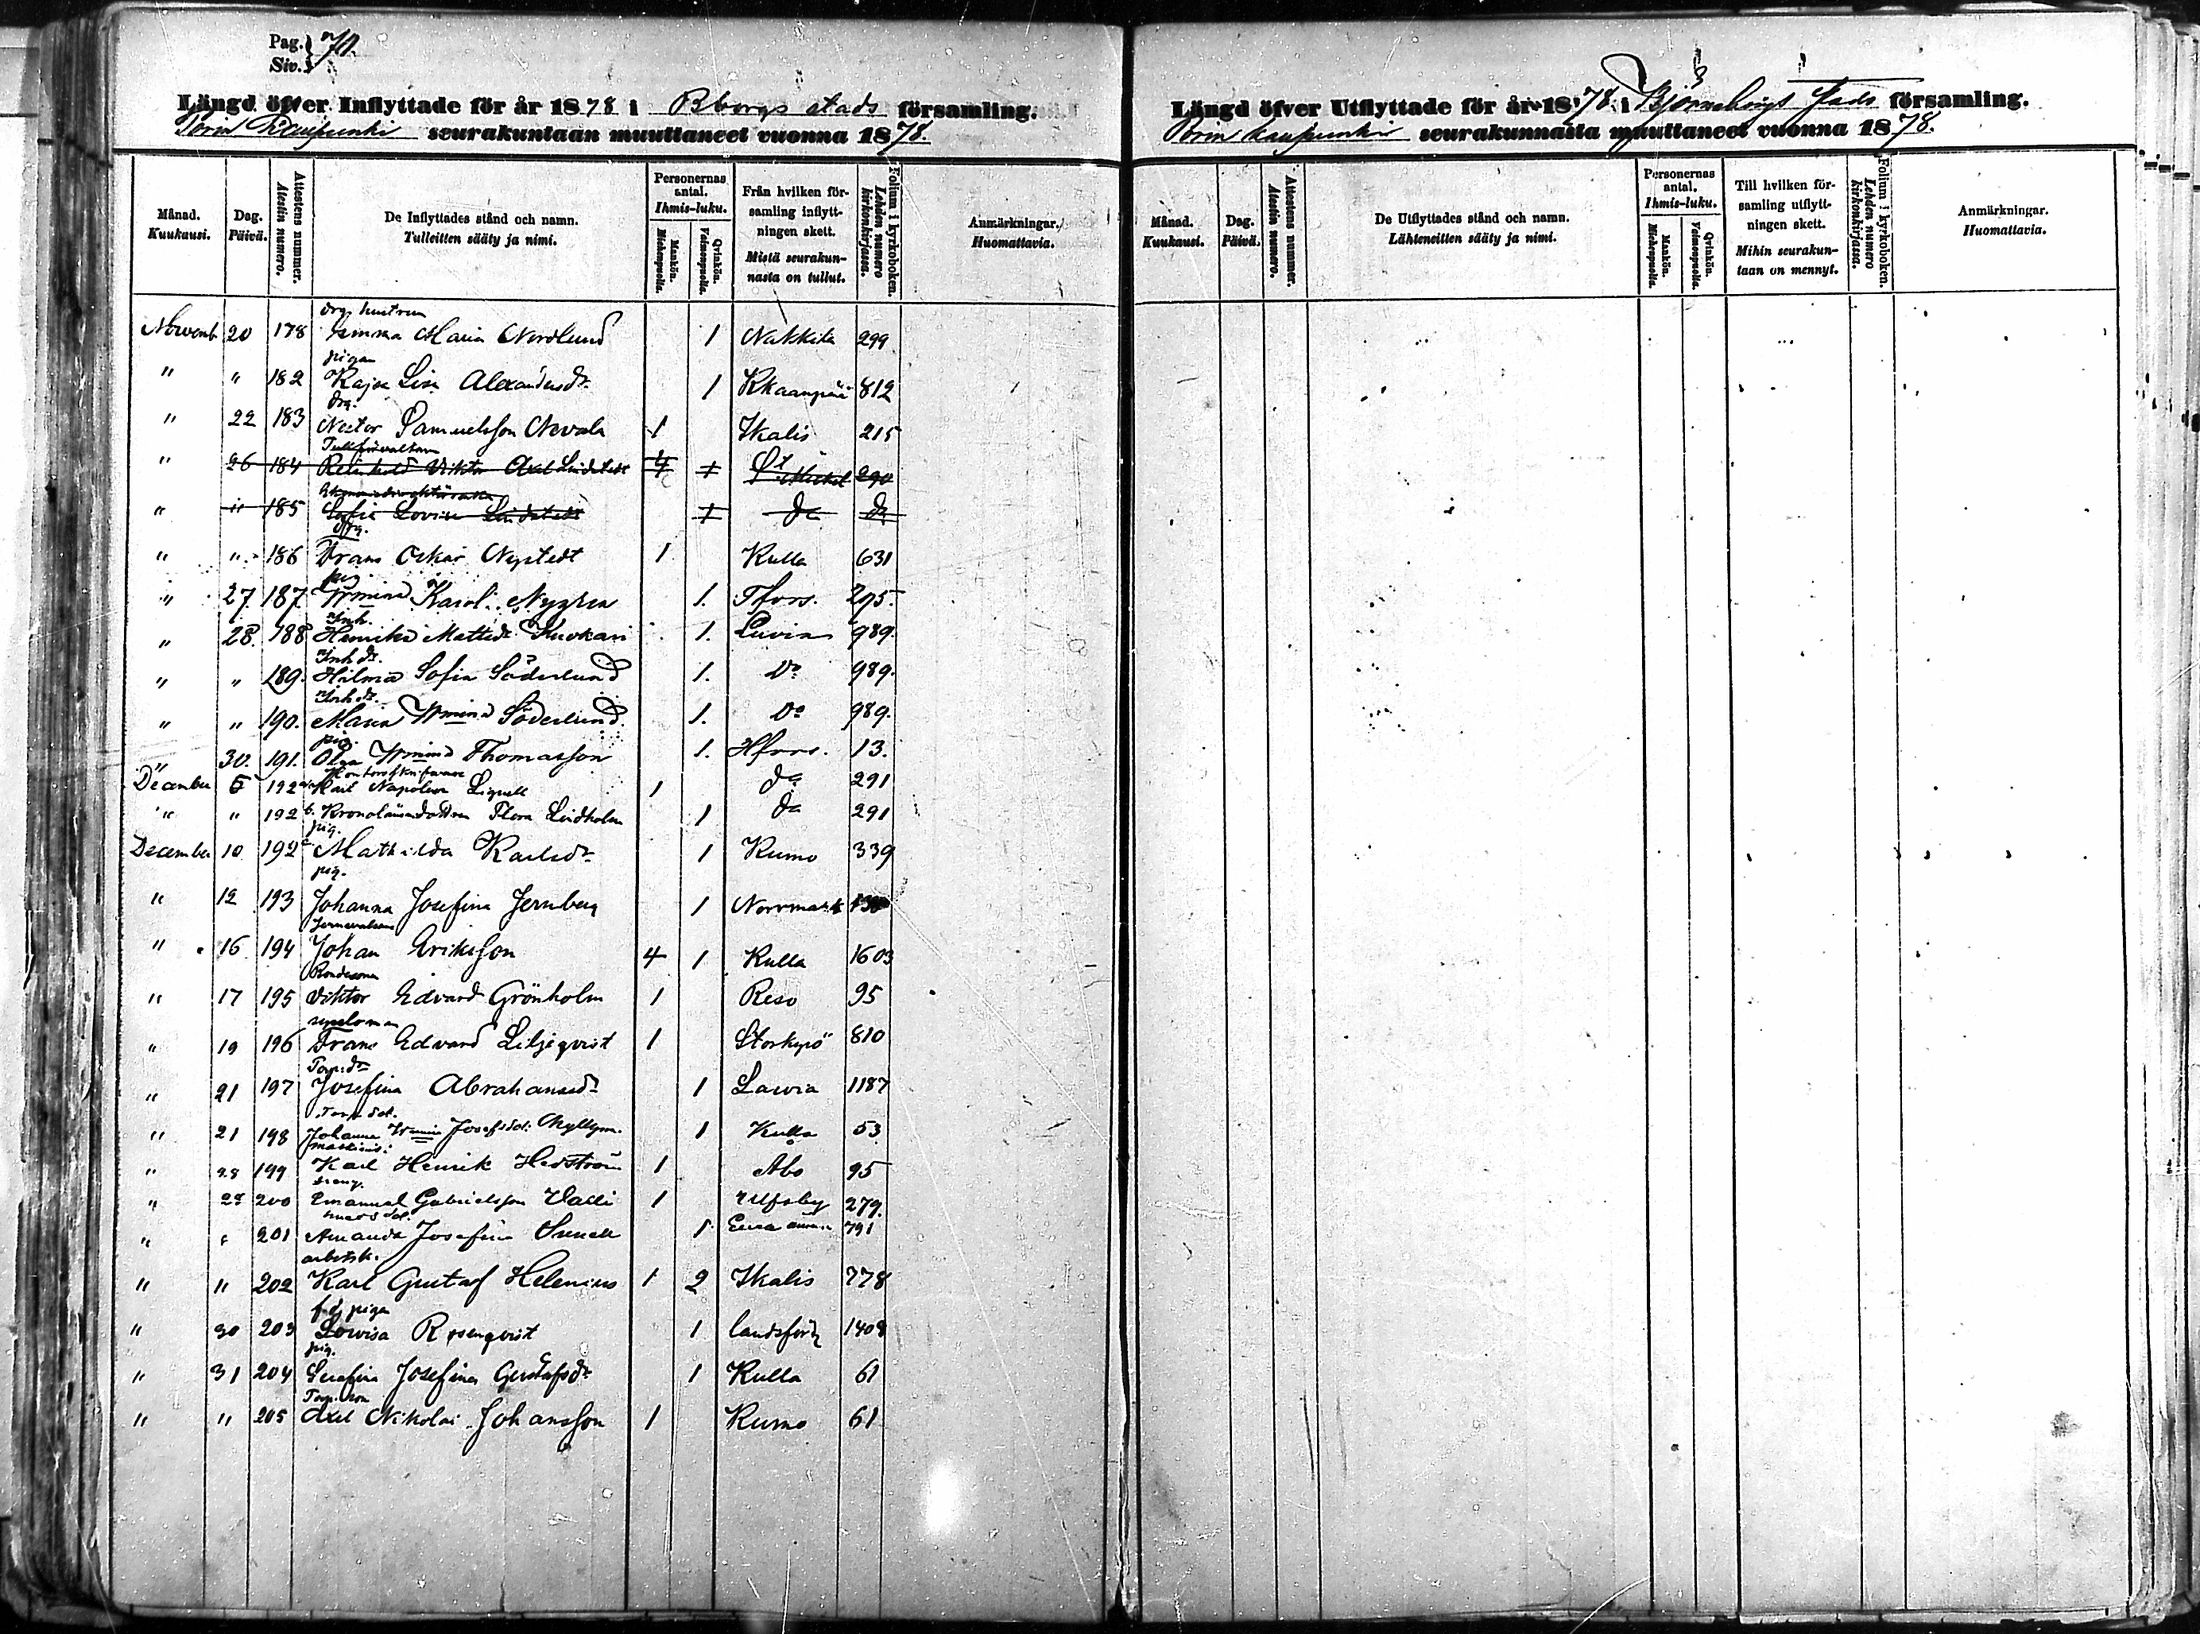 Pag. 70.
Siv.
Längd öfver Inflyttade för år 1878 i Bborgs stads församling.
Porin Kaupunki seurakuntaan muuttaneet vuonna 1878.
Månad. Kuukausi.
Dag. Päivä.
Attestens nummer. Atestin numero.
De Inflyttades stånd och namn. Tulleitten sääty ja nimi.
Personernas antal. Ihmis-luku.
Mankön. Miehenpuolia.
Qvinkön. Vaimonpuolia.
Från hvilken församling inflyttningen skett. Mistä seurakunnasta on tullut.
Folium i kyrkoboken. Lehden numero kirkonkirjassa.
Anmärkningar. Huomattavia.
drgs hustrun
Novemb 20 178 Emma Maria Nordlund 1 Nakkila 299
pigan
" " 182 Kajsa Lisa Alexandersdr 1 Kkaanpää 812
drg.
" 22 183 Nestor Samuelsson Nevala 1 Ikalis 215
Tullförvaltarn
" 26 184 Reinhold Viktor Axel Lindstedt 4 1 St Michel 290
" " 185 Sofia Lovisa Lindstedt 1 do do
drg.
" " 186 Frans Oskar Nystedt 1 Kulla 631
pig.
" 27. 187. Wmina Karol. Nygren 1. Tfors. 295.
Inh.
" 28. 188 Henrika Mattsdr Kuokari 1. Luvia 989.
Inh dr.
" " 189. Hilma Sofia Söderlund 1. Do 989.
Inh dr.
" " 190. Maria Wmina Söderlund. 1. Do 989.
pig.
" 30. 191. Olga Wmina Thomasson 1. Hfors. 13.
Kontorsskrifvare
December 5 192 a Karl Napoleon Lignell 1 do 291
" " 192 b. Kronolänsm.dottren Flora Lindholm 1 do 291
pig.
December 10 192 c Mathilda Karlsdr 1 Kumo 339
pig.
" 12 193 Johanna Josefina Jernberg 1 Norrmark
" 16 194 Johan Eriksson 4 1 Kulla 1603
Kondesonen
" 17 195 Viktor Edvard Grönholm 1 Reso 95
" 19 196 Frans Edvard Liljeqvist 1 Storkyrö 810
Torp.dr
" 21 197 Josefina Abrahamsdr 1 Lavia 1187
Torp dot.
" 21 198 Johanna Wmina Josefsdot: Myllym. 1 Kulla 53
maskinis:
" 28 199 Karl Henrik Hedström 1 Abo 95
dreng.
" 28 200 Emanuel Gabrielsson Valli 1 Ulfsby 279.
" " 201 Amanda Josefina 1 Eura 791
arbetsk.
" " 202 Karl Gustaf Helenius 1 2 Ikalis 778
f.d. piga
" 30 203 Lovisa Rosenqvist 1 landsförs 1408
pig.
" 31 204 Serafina Josefina Gustafsdr 1 Kulla 61
Torp.son
" " 205 Axel Nikolai Johansson 1 Kumo 61
Längd öfver Utflyttade för år 1878 i Björneborgs Stads församling.
Porin Kaupunki seurakunnasta muuttaneet vuonna 1878.
Månad. Kuukausi.
Dag. Päivä.
Attestens nummer. Atestin numero.
De Utflyttades stånd och namn. Lähteneitten sääty ja nimi.
Personernas antal. Ihmis-luku.
Mankön. Miehenpuolia.
Qvinkön. Vaimonpuolia.
Till hvilken församling utflyttningen skett. Mihin seurakuntaan on mennyt.
Folium i kyrkoboken. Lehden numero kirkonkirjassa.
Anmärkningar. Huomattavia.